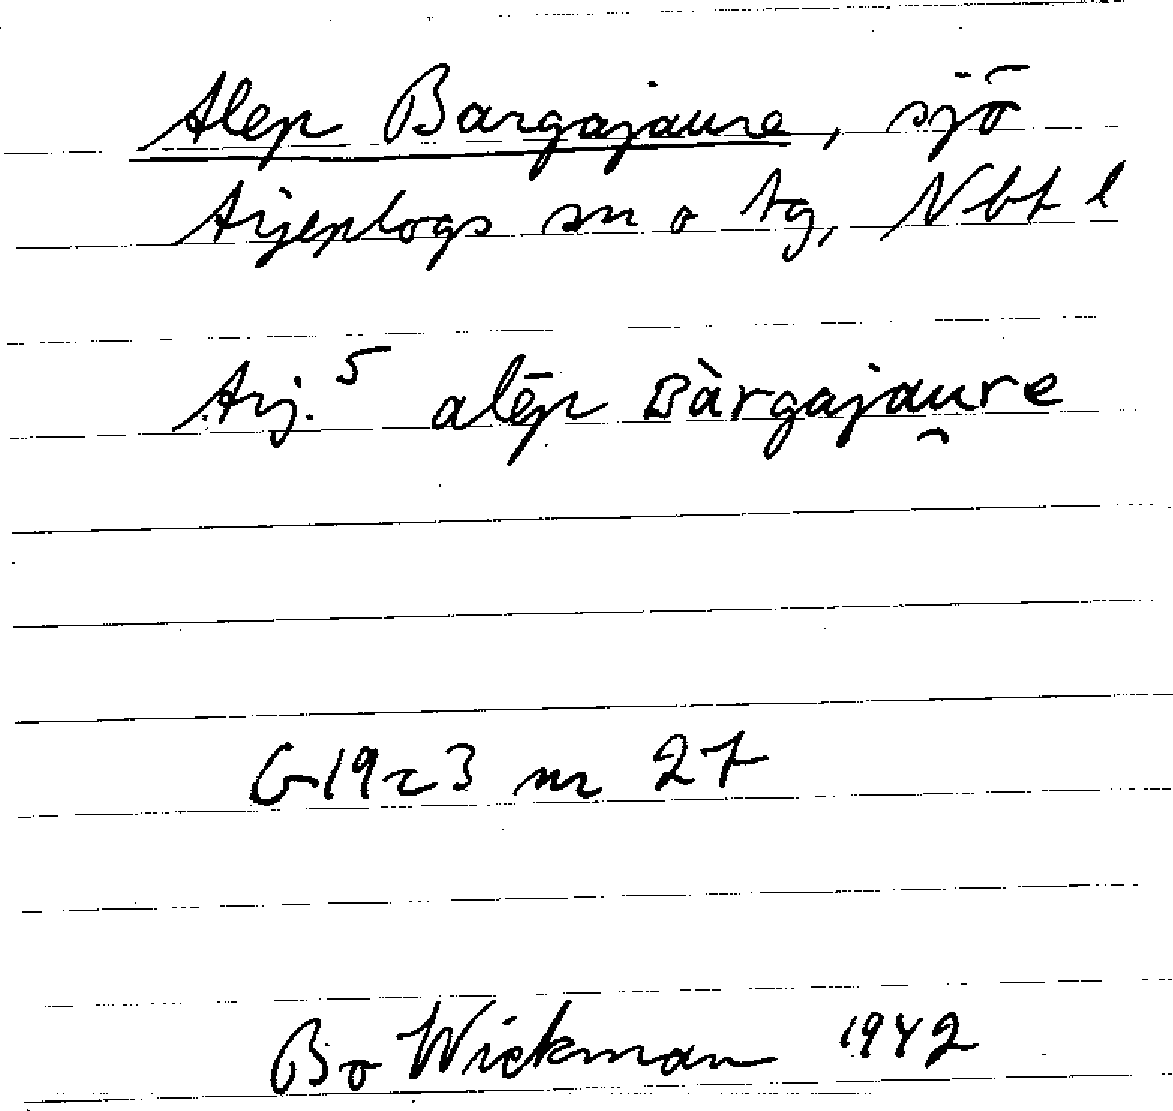 Alep Bargajaure, sjö
Arjeplogs sn o tg, Nbt l
Arj.⁵ alēp Bàrgajau̯re
G19z3 nr 27
Bo Wickman 1942